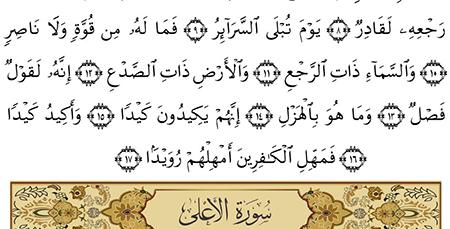 رَجْعِهِۦ لَقَادِرٌ ﴿٨﴾ يَوْمَ تُبْلَى ٱلسَّرَآئِرُ ﴿٩﴾ فَمَا لَهُۥ مِن قُوَّةٍ وَلَا نَاصِرٍ
﴿١٠﴾ وَٱلسَّمَآءِ ذَاتِ ٱلرَّجْعِ ﴿١١﴾ وَٱلْأَرْضِ ذَاتِ ٱلصَّدْعِ ﴿١٢﴾ إِنَّهُۥ لَقَوْلٌ
فَصْلٌ ﴿١٣﴾ وَمَا هُوَ بِٱلْهَزْلِ ﴿١٤﴾ إِنَّهُمْ يَكِيدُونَ كَيْدًا ﴿١٥﴾ وَأَكِيدُ كَيْدًا
﴿١٦﴾ فَمَهِّلِ ٱلْكَـٰفِرِينَ أَمْهِلْهُمْ رُوَيْدًۢا ﴿١٧﴾
سُورَةُ الأَعْلَى